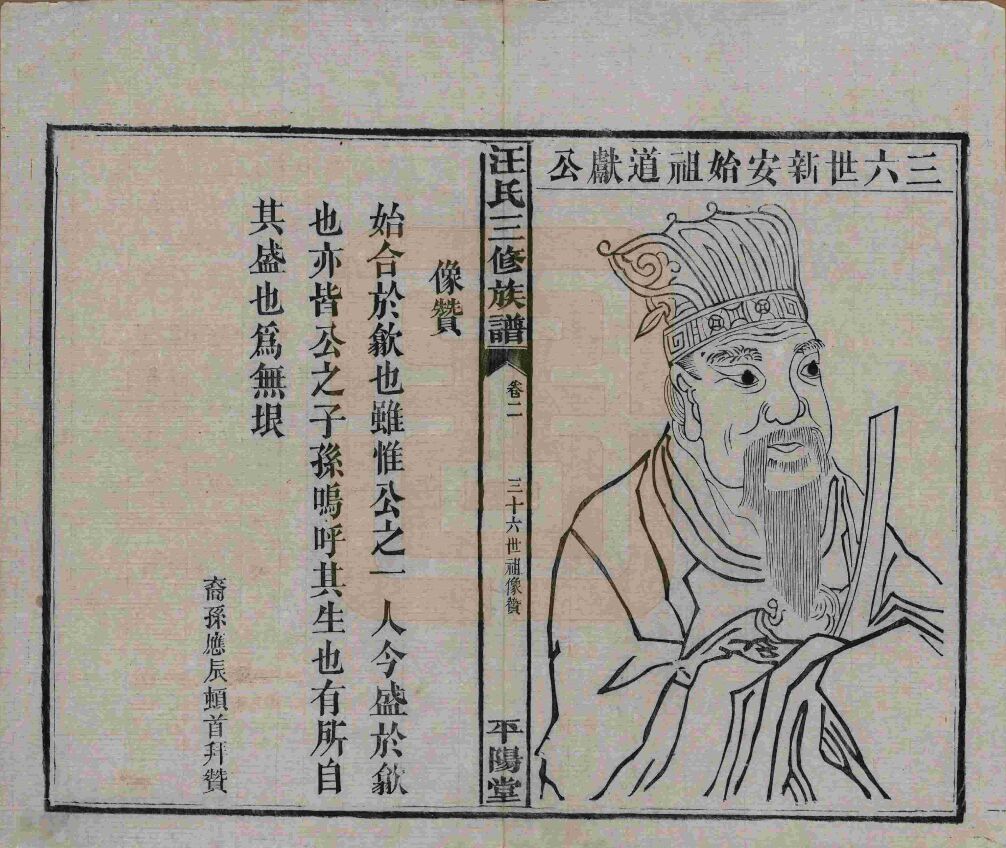 三六世新安始祖道獻公
汪氏三修族譜
卷二
三十六世祖像贊
平陽堂
像贊
始合於歙也雖惟公之一人今盛於歙
也亦皆公之子孫嗚呼其生也有所自
其盛也爲無垠
裔孫應辰頓首拜贊